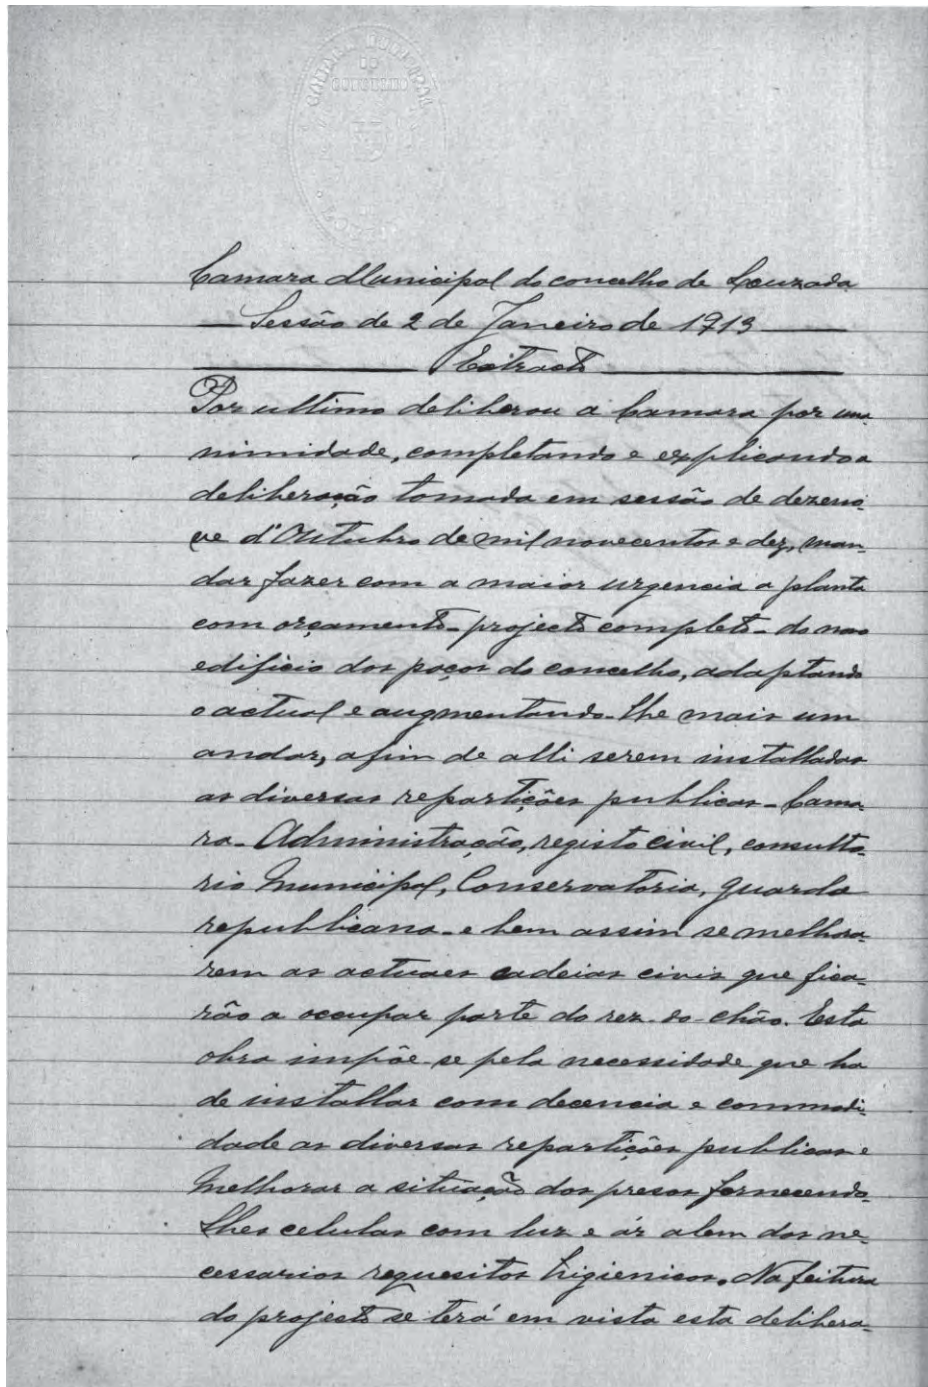 CAMARA MUNICIPAL
DO
CONCELHO
Camara Municipal do concelho de Louzada
Sessão de 2 de Janeiro de 1913
Extracto
Por ultimo deliberou a Camara por una-
nimidade, completando e explicando a
deliberação tomada em sessão de dezeno-
ve d'Outubro de mil novecentos e dez, man-
dar fazer com a maior urgencia a planta
com orçamento - projecto completo - do novo
edificio dos paços do concelho, adaptando
o actual e augmentando-lhe mais um
andar, afim de alli serem installadas
as diversas repartições publicas - Cama-
ra - Administração, registo civil, consulto-
rio Municipal, Conservatoria, guarda
republicana - e bem assim se melhora-
rem as actuaes cadeias civis que fica-
rão a occupar parte do rez-do-chão. Esta
obra impõe-se pela necessidade que ha
de installar com decencia e commodi-
dade as diversas repartições publicas e
melhorar a situação dos presos fornecendo-
lhes celulas com luz e ár alem dos ne-
cessarios requesitos higienicos. Na feitura
do projecto se terá em vista esta delibera-